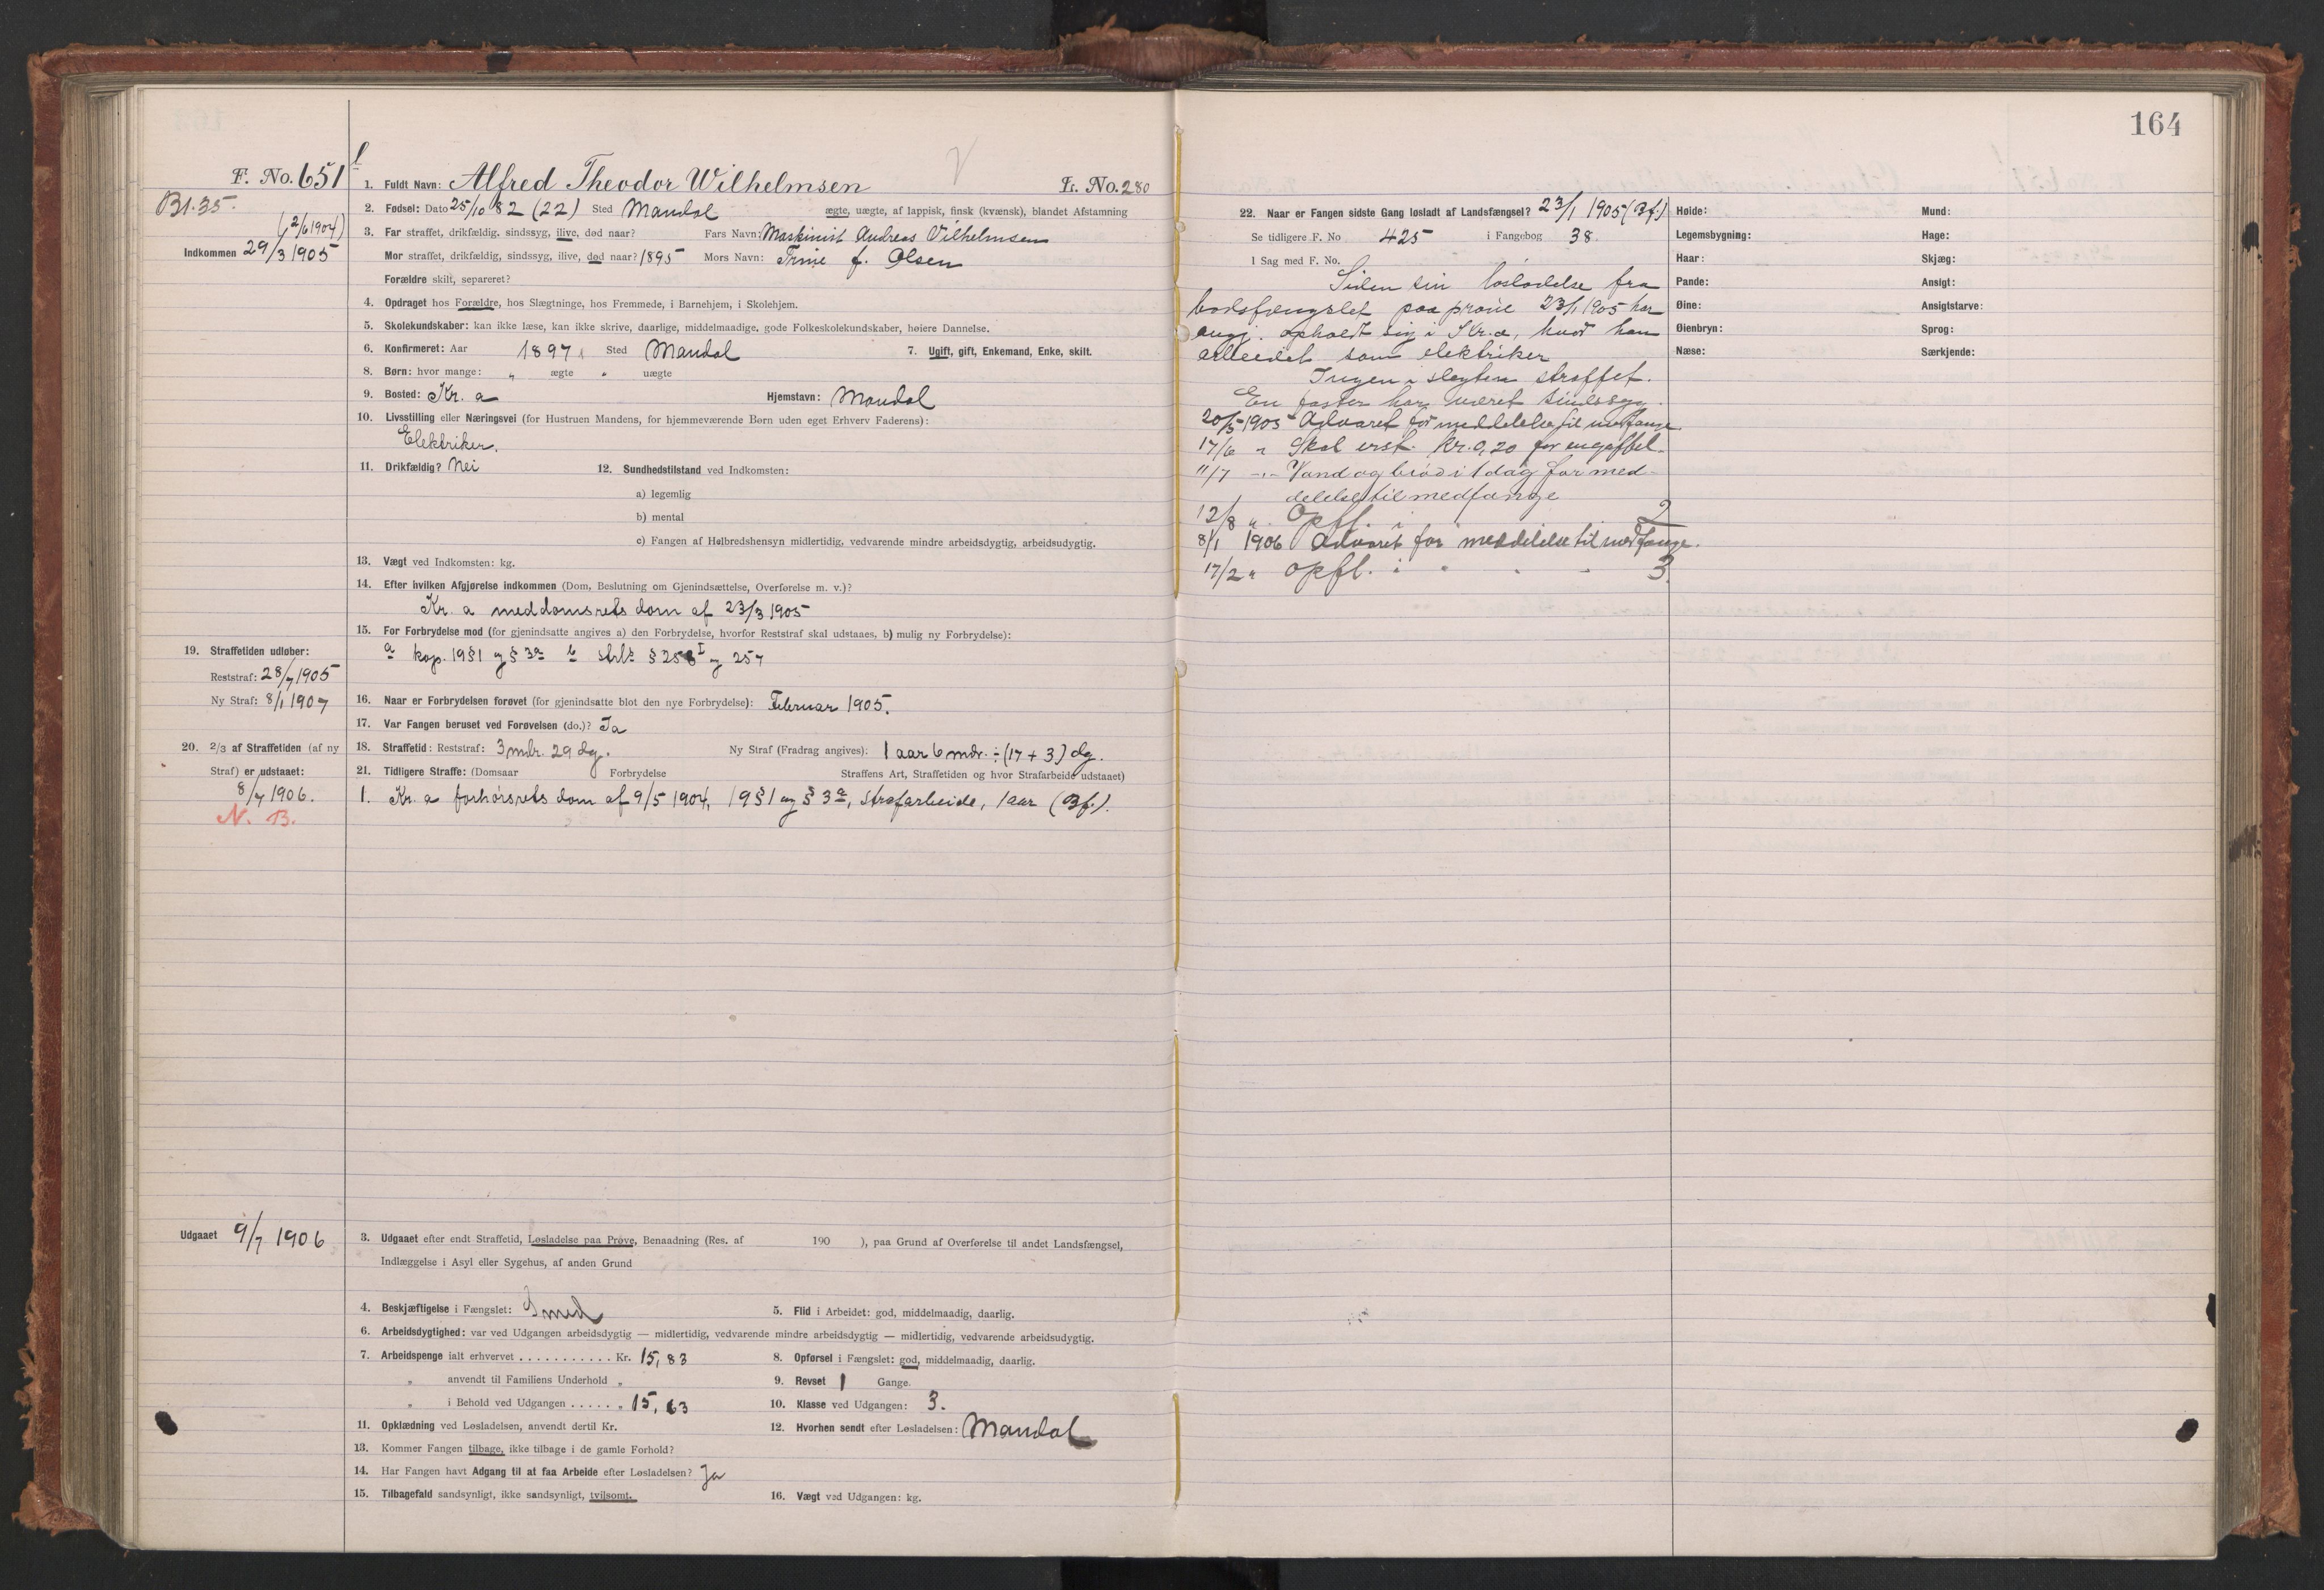 164
F. No. 651
Bl. 35.
(2/6 1904)
Indkommen 29/3 1905
1. Fuldt Navn: Alfred Theodor Wilhelmsen L. No. 280
2. Fødsel: Dato 25/10 82 (22) Sted Mandal ægte, uægte, af lappisk, finsk (kvænsk), blandet Afstamning
3. Far straffet, drikfældig, sindssyg, ilive, død naar? Fars Navn: Maskinist Andreas Vilhelmsen
Mor straffet, drikfældig, sindssyg, ilive, død naar? 1895 Mors Navn: Trine f. Olsen
Forældre skilt, separeret?
4. Opdraget hos Forældre, hos Slægtninge, hos Fremmede, i Barnehjem, i Skolehjem.
5. Skolekundskaber: kan ikke læse, kan ikke skrive, daarlige, middelmaadige, gode Folkeskolekundskaber, høiere Dannelse.
6. Konfirmeret: Aar 1897 Sted Mandal 7. Ugift, gift, Enkemand, Enke, skilt.
8. Børn: hvor mange: „ ægte „ uægte
9. Bosted: Kr. a Hjemstavn: Mandal
10. Livsstilling eller Næringsvei (for Hustruen Mandens, for hjemmeværende Børn uden eget Erhverv Faderens):
Elektriker.
11. Drikfældig? Nei 12. Sundhedstilstand ved Indkomsten:
a) legemlig
b) mental
c) Fangen af Helbredshensyn midlertidig, vedvarende mindre arbeidsdygtig, arbeidsudygtig.
13. Vægt ved Indkomsten: kg.
14. Efter hvilken Afgjørelse indkommen (Dom, Beslutning om Gjenindsættelse, Overførelse m. v.)?
Kr. a meddomsrets dom af 23/3 1905
15. For Forbrydelse mod (for gjenindsatte angives a) den Forbrydelse, hvorfor Reststraf skal udstaaes, b) mulig ny Forbrydelse):
a kap. 19 § 1 og § 3a b strl. § 258 I og 257
19. Straffetiden udløber:
Reststraf: 28/7 1905
Ny Straf: 8/1 1907
16. Naar er Forbrydelsen forøvet (for gjenindsatte blot den nye Forbrydelse): Februar 1905.
17. Var Fangen beruset ved Forøvelsen (do.)? Ja
20. 2/3 af Straffetiden (af ny
Straf) er udstaaet:
8/7 1906.
N. B.
18. Straffetid: Reststraf: 3 mdr. 29 dg. Ny Straf (Fradrag angives): 1 aar 6 mdr. ÷ (17 + 3) dg.
21. Tidligere Straffe: (Domsaar Forbrydelse Straffens Art, Straffetiden og hvor Strafarbeide udstaaet)
1. Kr. a forhørsrets dom af 9/5 1904, 19 § 1 og § 3a, strafarbeide, 1 aar (Bf.).
Udgaaet 9/7 1906
3. Udgaaet efter endt Straffetid, Løsladelse paa Prøve, Benaadning (Res. af 190 ), paa Grund af Overførelse til andet Landsfængsel,
Indlæggelse i Asyl eller Sygehus, af anden Grund
4. Beskjæftigelse i Fængslet: Smed 5. Flid i Arbeidet: god, middelmaadig, daarlig.
6. Arbeidsdygtighed: var ved Udgangen arbeidsdygtig — midlertidig, vedvarende mindre arbeidsdygtig — midlertidig, vedvarende arbeidsudygtig.
7. Arbeidspenge ialt erhvervet . . . . . . . . . . . Kr. 15,83 8. Opførsel i Fængslet: god, middelmaadig, daarlig.
„ anvendt til Familiens Underhold „ 9. Revset 1 Gange.
„ i Behold ved Udgangen . . . . . „ 15,63 10. Klasse ved Udgangen: 3.
11. Opklædning ved Løsladelsen, anvendt dertil Kr. 12. Hvorhen sendt efter Løsladelsen: Mandal
13. Kommer Fangen tilbage, ikke tilbage i de gamle Forhold?
14. Har Fangen havt Adgang til at faa Arbeide efter Løsladelsen? Ja
15. Tilbagefald sandsynligt, ikke sandsynligt, tvilsomt. 16. Vægt ved Udgangen: kg.
22. Naar er Fangen sidste Gang løsladt af Landsfængsel? 23/1 1905 (Bf.)
Se tidligere F. No 425 i Fangebog 38.
I Sag med F. No.
Siden sin løsladelse fra
bodsfængslet paa prøve 23/1 1905 har
angj. opholdt sig i Kr.a, hvor han
arbeidet som elektriker
Ingen i slegten straffet.
En faster har været sindssyg.
20/5 1905 Advaret for meddelelse til medfange
17/6 " Skal erst. kr. 0,20 for en gaffel.
11/7 -"- Vand og brød i 1 dag for med-
delelse til medfange
12/8 " Opfl. i 2
8/1 1906 Advaret for meddelelse til medfange.
17/2 " opfl. i " " " 3.
Høide: Mund:
Legemsbygning: Hage:
Haar: Skjæg:
Pande: Ansigt:
Øine: Ansigtsfarve:
Øienbryn: Sprog:
Næse: Særkjende: